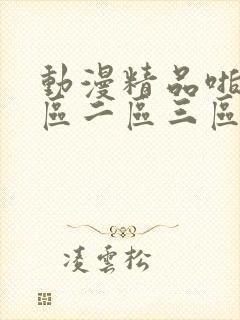 動漫精品啪
區二區三區
凌雲松